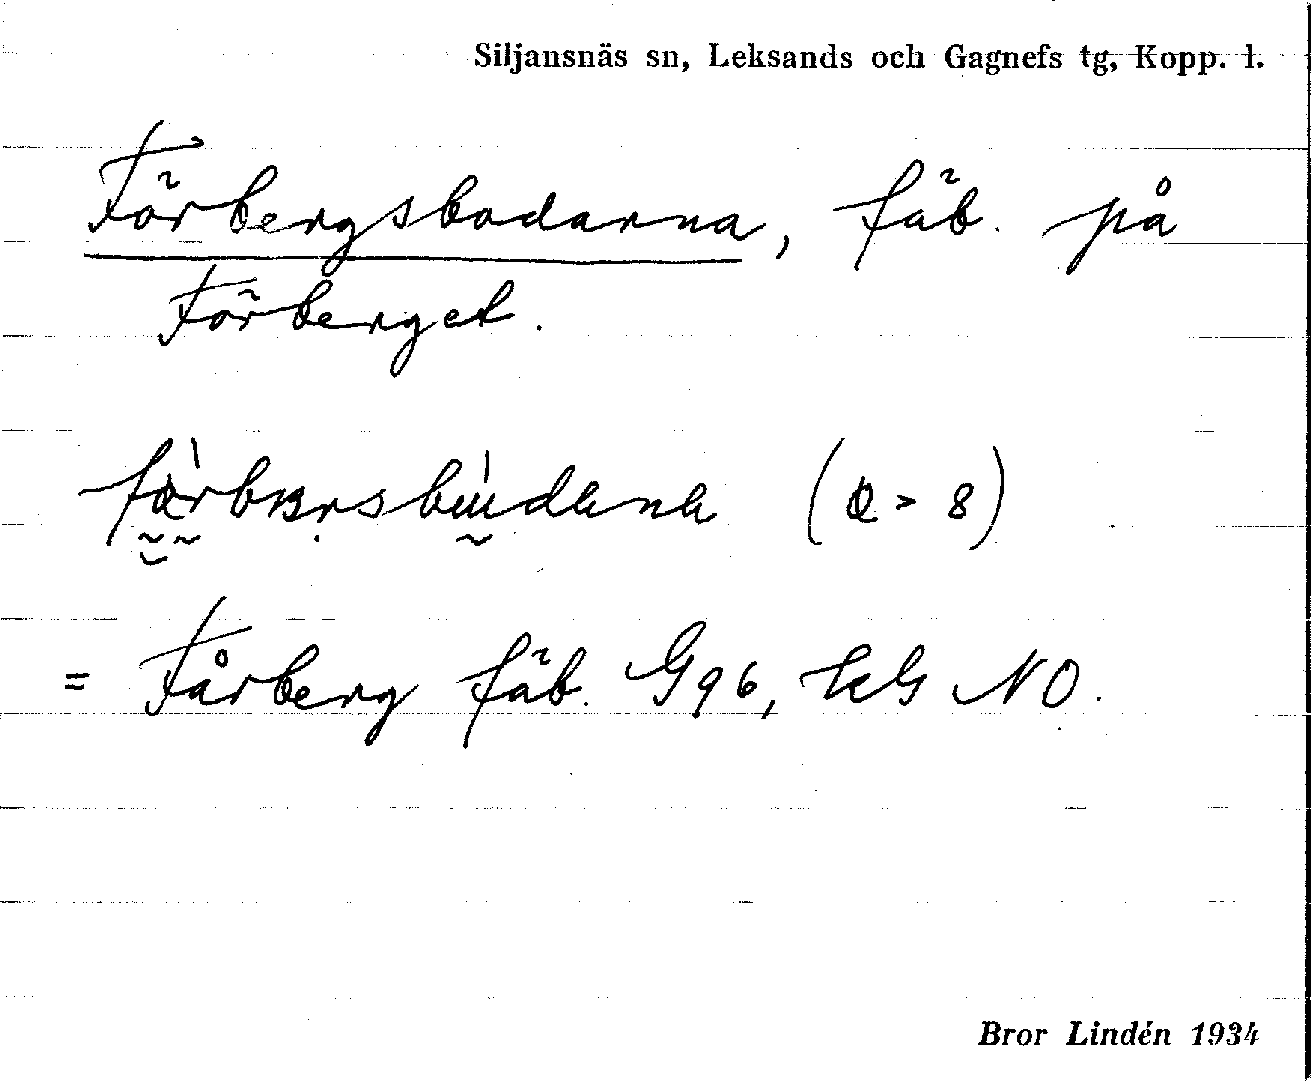 Siljansnäs sn, Leksands och Gagnefs tg, Kopp. l.
Förbergsbodarna, fäb. på
Förberget.
= Fårberg fäb. G96, NO.
Bror Lindén 1934